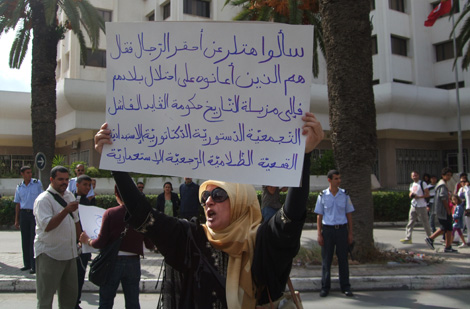 سألوا هتلر عن أحقر الرجال فقال
هم الذين أعانوه على احتلال بلادهم
فإلى مزبلة التاريخ حكومة القايد الفاشل
التجمعية الدستورية الدكتاتورية الاستبدادية
القمعية الظلامية الرجعية الاستعمارية